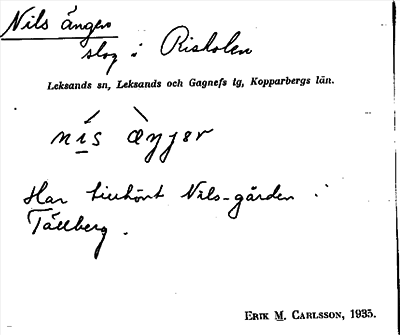 Nils ängen
slog i Risholen
Leksands sn, Leksands och Gagnefs tg, Kopparbergs län.
nis æŋjer
Har tillhört Nils-gården i
Tällberg.
ERIK M. CARLSSON, 1935.